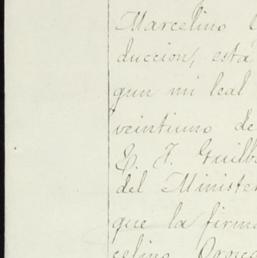 Marcelino
ducción, está
gun mi leal
veintiuno de
E. J. Guilb
del Minister
que la firma
celino Orozco